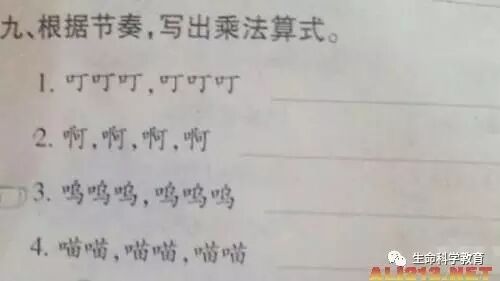 九、根据节奏,写出乘法算式。
1. 叮叮叮,叮叮叮
2. 啊,啊,啊,啊
3. 呜呜呜,呜呜呜
4. 喵喵,喵喵,喵喵
生命科学教育
ALI213.NET